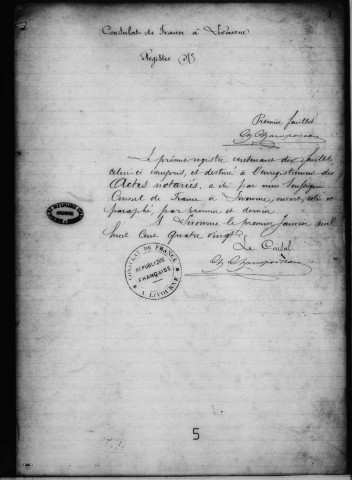 Consulat de France à Livourne
Registre
Premier feuillet
Ch Champoiseau
Le présent registre contenant dix feuillets,
celui-ci compris, et destiné à l'enregistrement des
Actes notariés, a été par nous soussigné
Consul de France à Livourne, ouvert, coté et
paraphé, par premier et dernier.
à Livourne le premier Janvier mil
huit cent quatre vingt
Le Consul
Ch Champoiseau
CONSULAT DE FRANCE
RÉPUBLIQUE
FRANÇAISE
A LIVOURNE
5